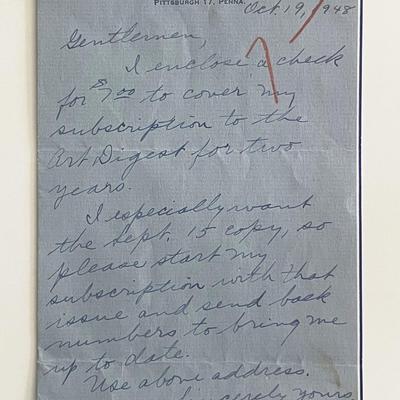 PITTSBURGH 17, PENNA.
Oct. 19, 1948
Gentlemen,
I enclose a check
for $7.00 to cover my
subscription to the
Art Digest for two
years.
I especially want
the Sept. 15 copy, so
please start my
subscription with that
issue and send back
numbers to bring me
up to date.
Use above address.
Sincerely yours